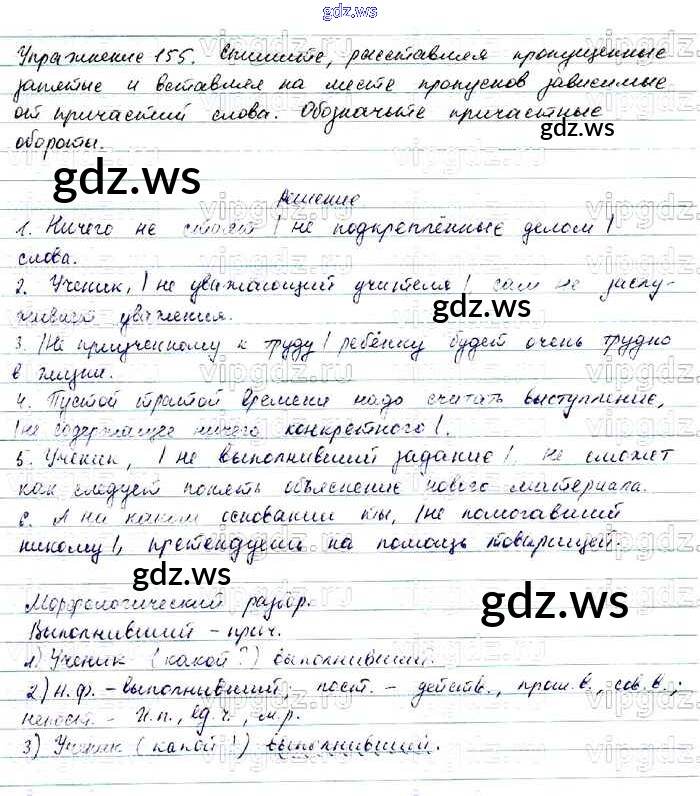 gdz.ws
Упражнение 155. Спишите, расставляя пропущенные
запятые и вставляя на месте пропусков зависимые
от причастий слова. Обозначьте причастные
обороты.
gdz.ws
gdz.ws
Решение
1. Ничего не стоят | не подкреплённые делом |
слова.
2. Ученик, | не уважающий учителя |, сам не заслу-
живает уважения.
gdz.ws
3. |Не приученному к труду| ребёнку будет очень трудно
в жизни.
4. Пустой тратой времени надо считать выступление,
|не содержащее ничего конкретного|.
5. Ученик, | не выполнивший задание|, не сможет
как следует понять объяснение нового материала.
6. А на каком основании ты, |не помогавший
никому|, претендуешь на помощь товарищей
gdz.ws
gdz.ws
Морфологический разбор.
Выполнивший – прич.
1) Ученик (какой?) выполнивший.
2) Н.ф. – выполнивший; пост. – действ., прош.в., сов.в.;
непост. – И.п., ед.ч., м.р.
3) Ученик (какой?) выполнивший.